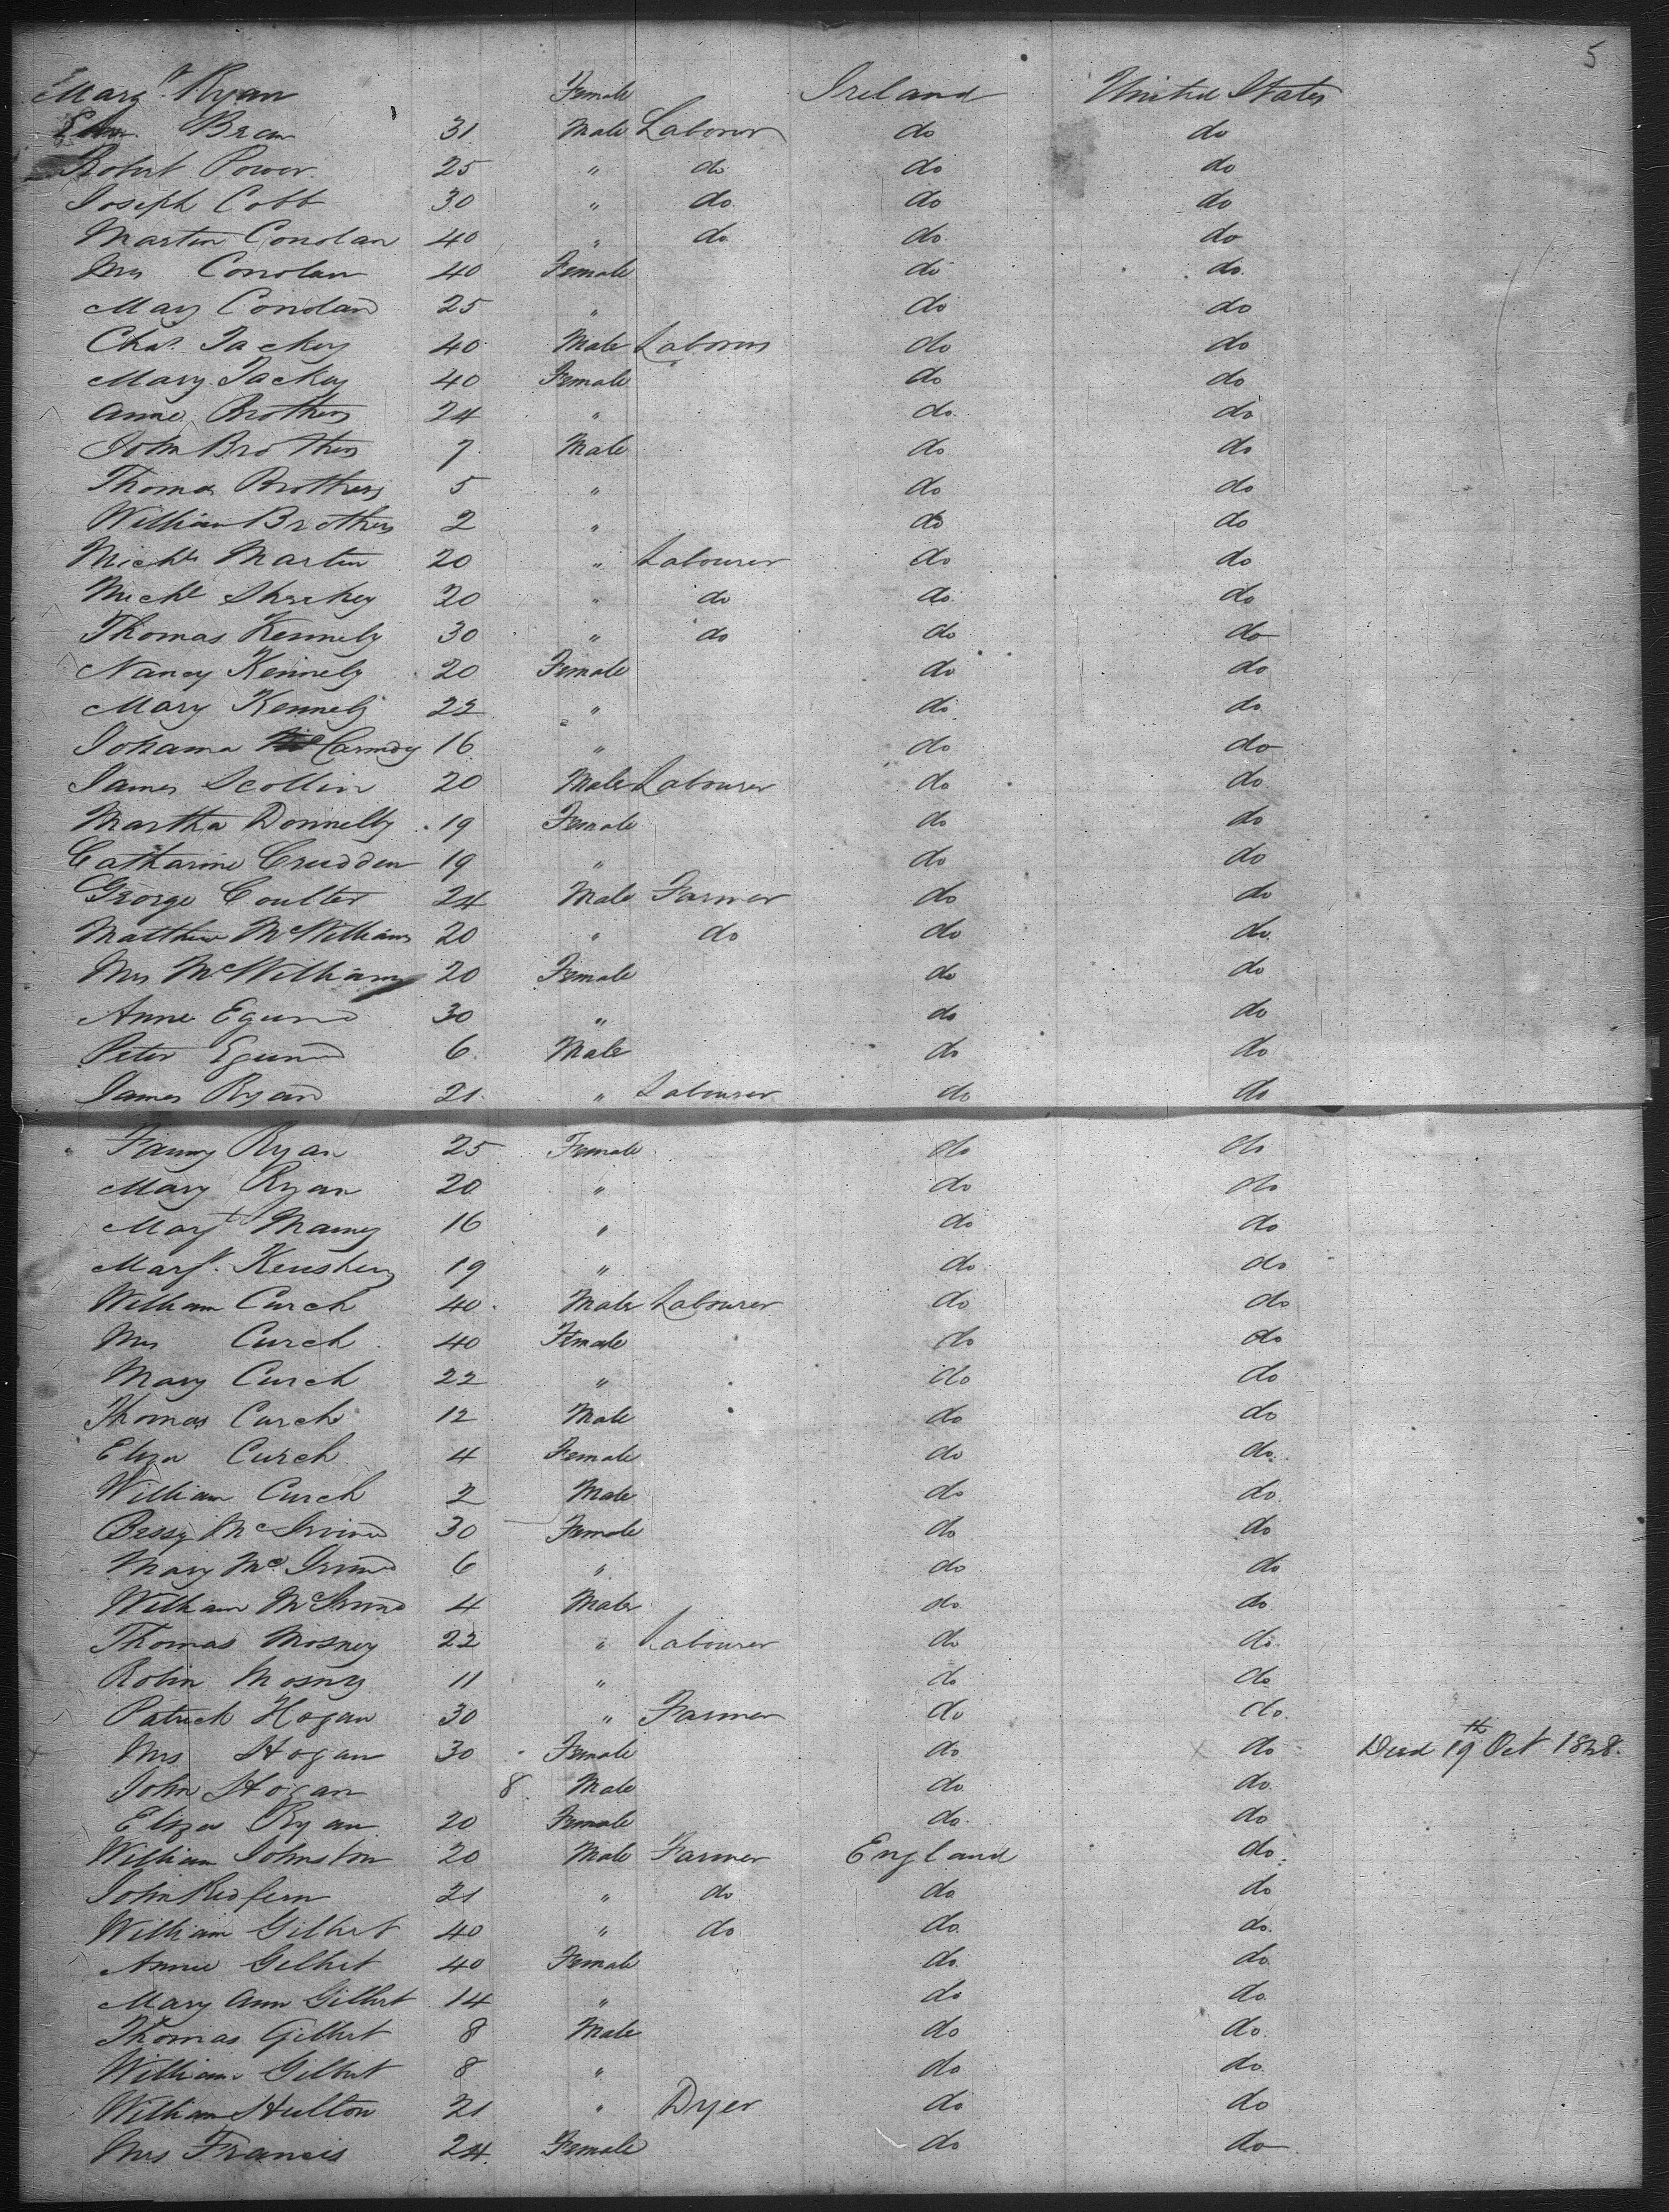 5
Marg.t Ryan Female Ireland United States
Edm. Bren 31 Male Laborer do do
Robert Power 25 " do do do
Joseph Cobb 30 " do do do
Martin Conolan 40 " do do do
Mrs Conolan 40 Female do do
Mary Conolan 25 " do do
Chas. Jackey 40 Male Laborer do do
Mary Jackey 40 Female do do
Anne Brothers 24 " do do
John Brothers 7 Male do do
Thomas Brothers 5 " do do
William Brothers 2 " do do
Michl Martin 20 " Labourer do do
Michl Sharkey 20 " do do do
Thomas Kennely 30 " do do do
Nancy Kennely 20 Female do do
Mary Kennely 22 " do do
Johanna Carmody 16 " do do
James Scollin 20 Male Labourer do do
Martha Donnelly 19 Female do do
Catharine Crudden 19 " do do
George Coulter 24 Male Farmer do do
Matthew McWilliams 20 " do do do
Mrs McWilliams 20 Female do do
Anne Egund 30 " do do
Peter Egund 6 Male do do
James Ryan 21 " Labourer do do
Fanny Ryan 25 Female do do
Mary Ryan 20 " do do
Margt 16 " do do
Margt. 19 " do do
William Curch 40 Male Labourer do do
Mrs Curch 40 Female do do
Mary Curch 22 " do do
Thomas Curch 12 Male do do
Eliza Curch 4 Female do do
William Curch 2 Male do do
Bessy McIrvine 30 Female do do
Mary Mc 6 " do do
William Mc 4 Male do do
Thomas Mosney 22 " Labourer do do
Robin Mosney 11 " do do
Patrick Hogan 30 " Farmer do do
Mrs Hogan 30 Female do do Died 19th Oct 1828.
John Hogan 8 Male do do
Eliza Ryan 20 Female do do
William Johnston 20 Male Farmer England do
John Redfern 21 " do do do
William Gilbert 40 " do do do
Annie Gilbert 40 Female do do
Mary Ann Gilbert 14 " do do
Thomas Gilbert 8 Male do do
William Gilbert 8 " do do
William Hulton 21 " Dyer do do
Mrs Francis 24 Female do do